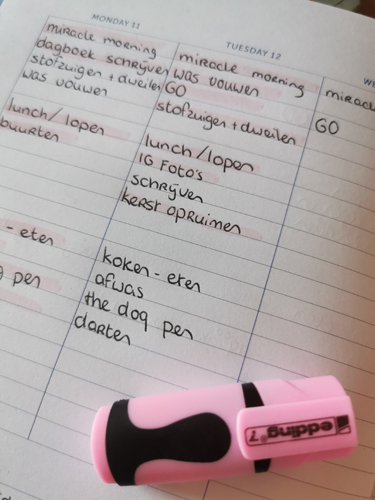 MONDAY 11
miracle morning
dagboek schrijven
stofzuigen + dweilen
was vouwen
lunch/lopen
buurten
- eten
pen
TUESDAY 12
miracle morning
was vouwen
GO
stofzuigen + dweilen
lunch/lopen
IG Foto's
schrijven
kerst opruimen
koken - eten
afwas
the dog pen
darten
WE
miracl
GO
edding 7